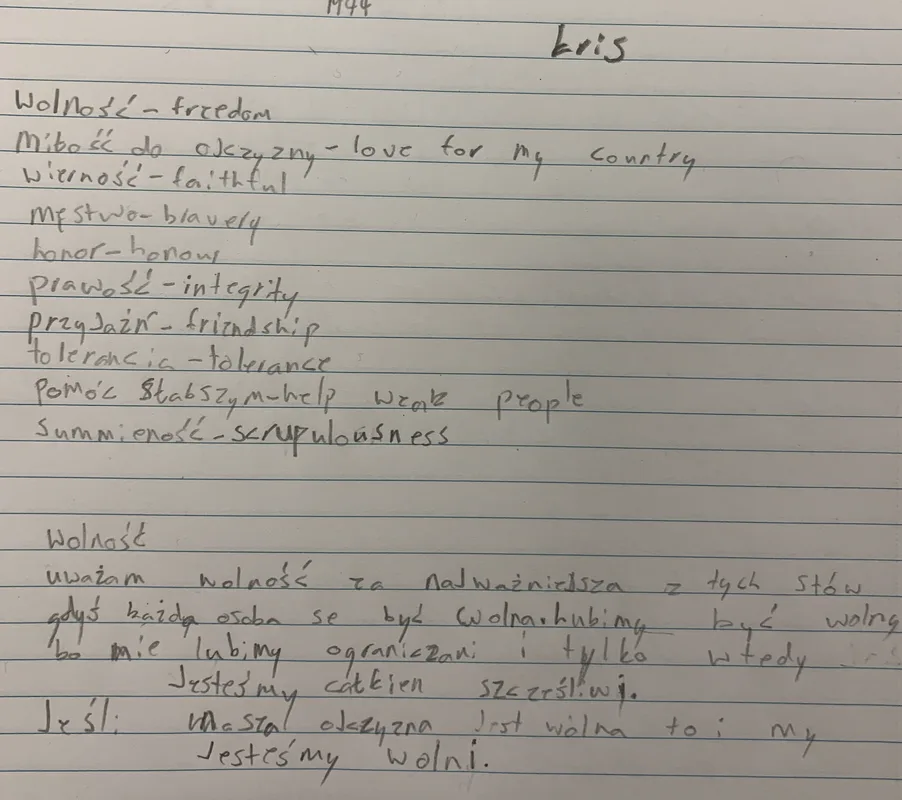 1944
kris
Wolność - freedom
Miłość do ojczyzny - love for my country
wierność - faithful
męstwo - blavery
honor - honour
prawość - integrity
przyjaźń - friendship
tolerancia - tolerance
pomóc słabszym - help weak people
Summieność - scrupulousness
Wolność
uważam wolność za najważniejsza z tych słów
gdyś każda osoba se być wolna. lubimy być wolng
bo mie lubimy ograniczani i tylko wtedy
Jesteśmy całkien szczęśliwi.
Jeśli naszal ojczyzna jest wolna to i my
Jesteśmy wolni.